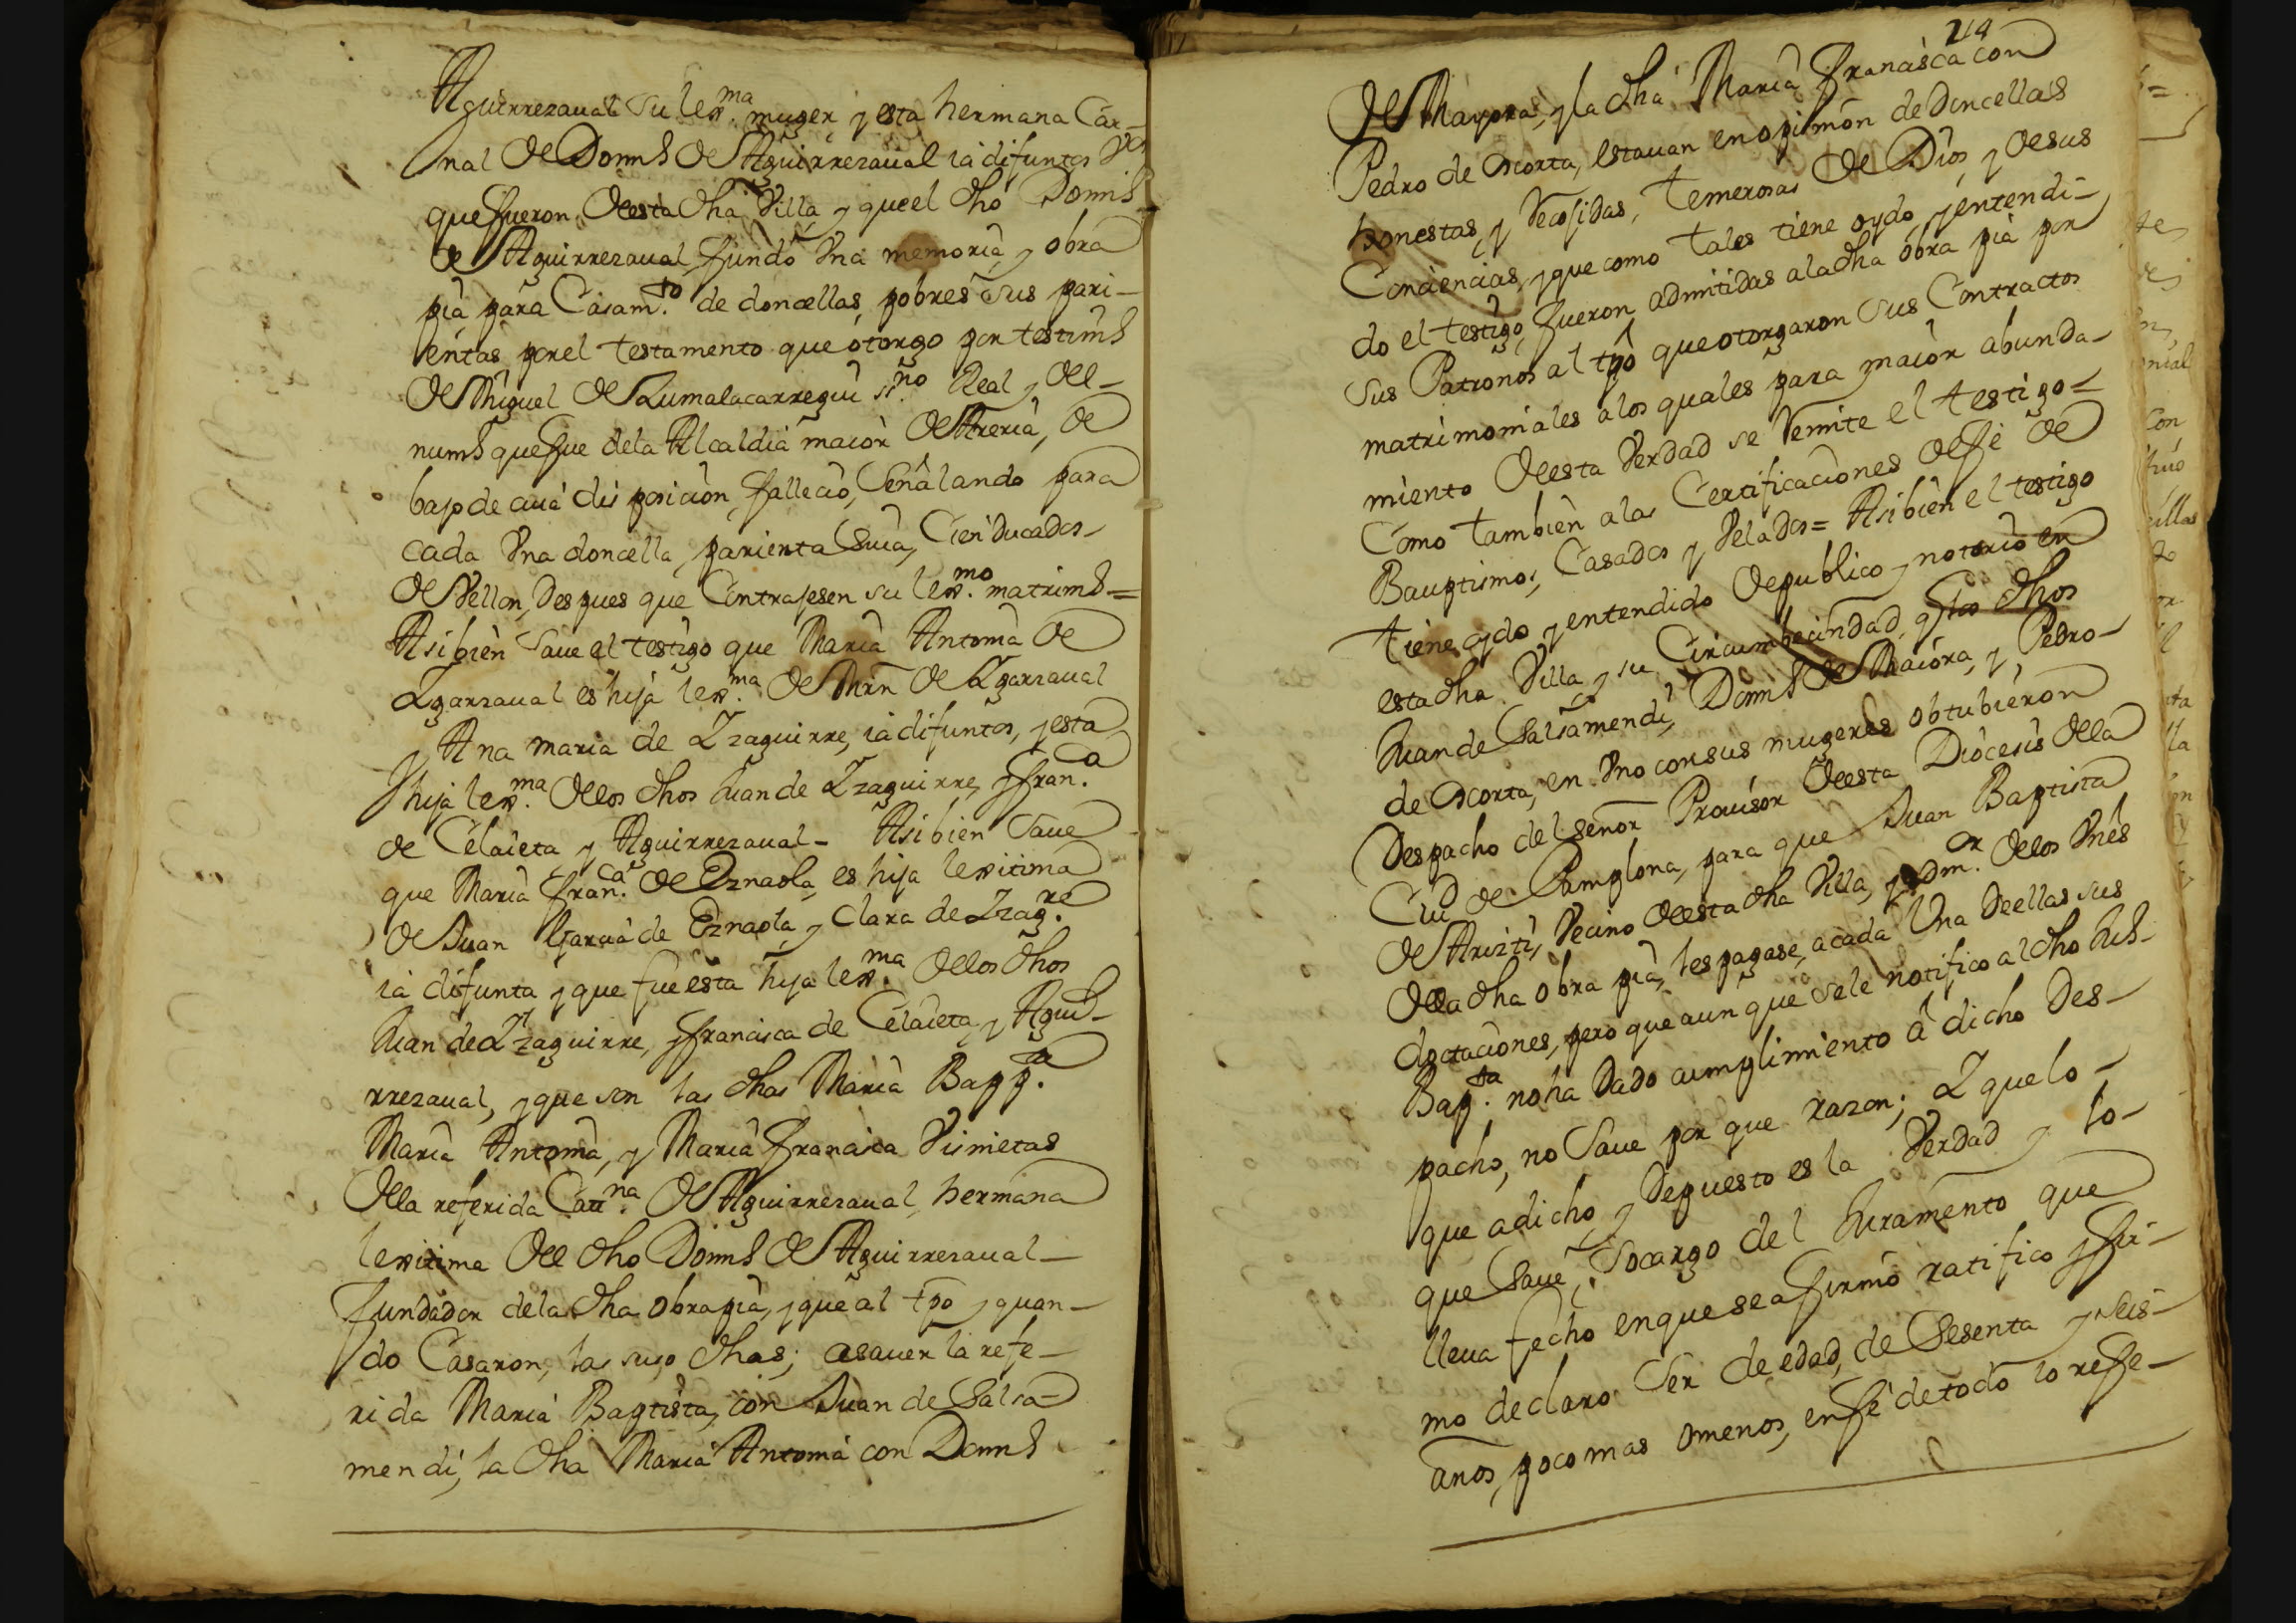 Aguirrezaual su lex.ma muger y esta hermana Car-
nal de Domus de Aguirrezaual ia difuntos Vos
que fueron de esta dha Villa y que el dho Domus
de Aguirrezaual fundó Vna memoria y obra
pia para Casam.to de doncellas pobres sus pari-
entas por el testamento que otorgo por testims
de Miguel de Zumalacarregui ss.no Real y del
nums que fue dela Alcaldia maior de Areria, de
bajo de cuia disposicion fallecio, Señalando para
cada Vna doncella parienta Suia, Cien ducados
de Vellon, despues que Contrajesen su lex.mo matrims=
Asibien Saue el testigo que Maria Antonia de
Zgarzaual es hija lex.ma de Mrn de Zgarzaual
y Ana maria de Yzaguirre, ia difuntos, y esta
hija lex.ma de los dhos Juan de Yzaguirre, y fran.ca
de Celaieta y Aguirrezaual- Asibien Saue
que Maria fran.ca de Eznaola, es hija lexitima
de Juan Garcia de Eznaola y Clara de Yzag.re
ia difunta y que fue esta hija lex.ma de los dhos
Juan de Yzaguirre, y francisca de Celaieta, y Agui-
rrezaual, y que son las dhas Maria Bapp.ta
Maria Antonia, y Maria francisca Visnietas
de la referida Catt.na de Aguirrezaual, hermana
lexitima del dho Domus de Aguirrezaual-
fundador dela dha obra pia, y que al tpo y quan-
do Casaron, las suso dhas; asauer la refe-
rida Maria Baptista, con Juan de Salsa-
mendi, la dha Maria Antonia con Domus
214
de Mayora, y la dha Maria francisca con
Pedro de Dorta, estauan en opinion de doncellas
honestas, y recojidas, temerosas de Dios, y de sus
Conciencias, y que como tales tiene oydo, y entendi-
do el testigo, fueron admitidas a la dha obra pia por
sus Patronos al tpo que otorgaron sus Contractos
matrimoniales a los quales para maior abunda-
miento de esta Verdad se remite el testigo-
Como tambien a las Certificaciones de fe de
Bauptismos, Casados y Velados= Asibien el testigo
tiene oydo y entendido de publico y notorio en
esta dha Villa y su Circumbecindad, q los dhos
Juan de Salsamendi, Domus de Maiora, y Pedro-
de Dorta, en Vno con sus mugeres obtubieron
Despacho del señor Prouisor de esta Diocesis de la
Ciud de Pamplona, para que Juan Baptista
de Arizti, Vecino de esta dha Villa, y Adm.or de los Vnes
de la dha obra pia, les pagase, a cada Vna de ellas sus
doctaciones, pero que aun que se le notifico al dho Jus-
Bap.ta no ha dado cumplimiento â dicho Des-
pacho, no Saue por que razon; Y que lo-
que a dicho y Depuesto es la Verdad y lo-
que Saue, Socargo del Juramento que
lleua fecho en que se afirmó ratifico y fir-
mo declaro Ser de edad, de Sesenta y seis-
años, poco mas o menos, en fe de todo lo refe-